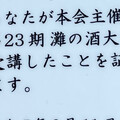 なたが本会主催
23期灘の酒大
講したことを証
ます。